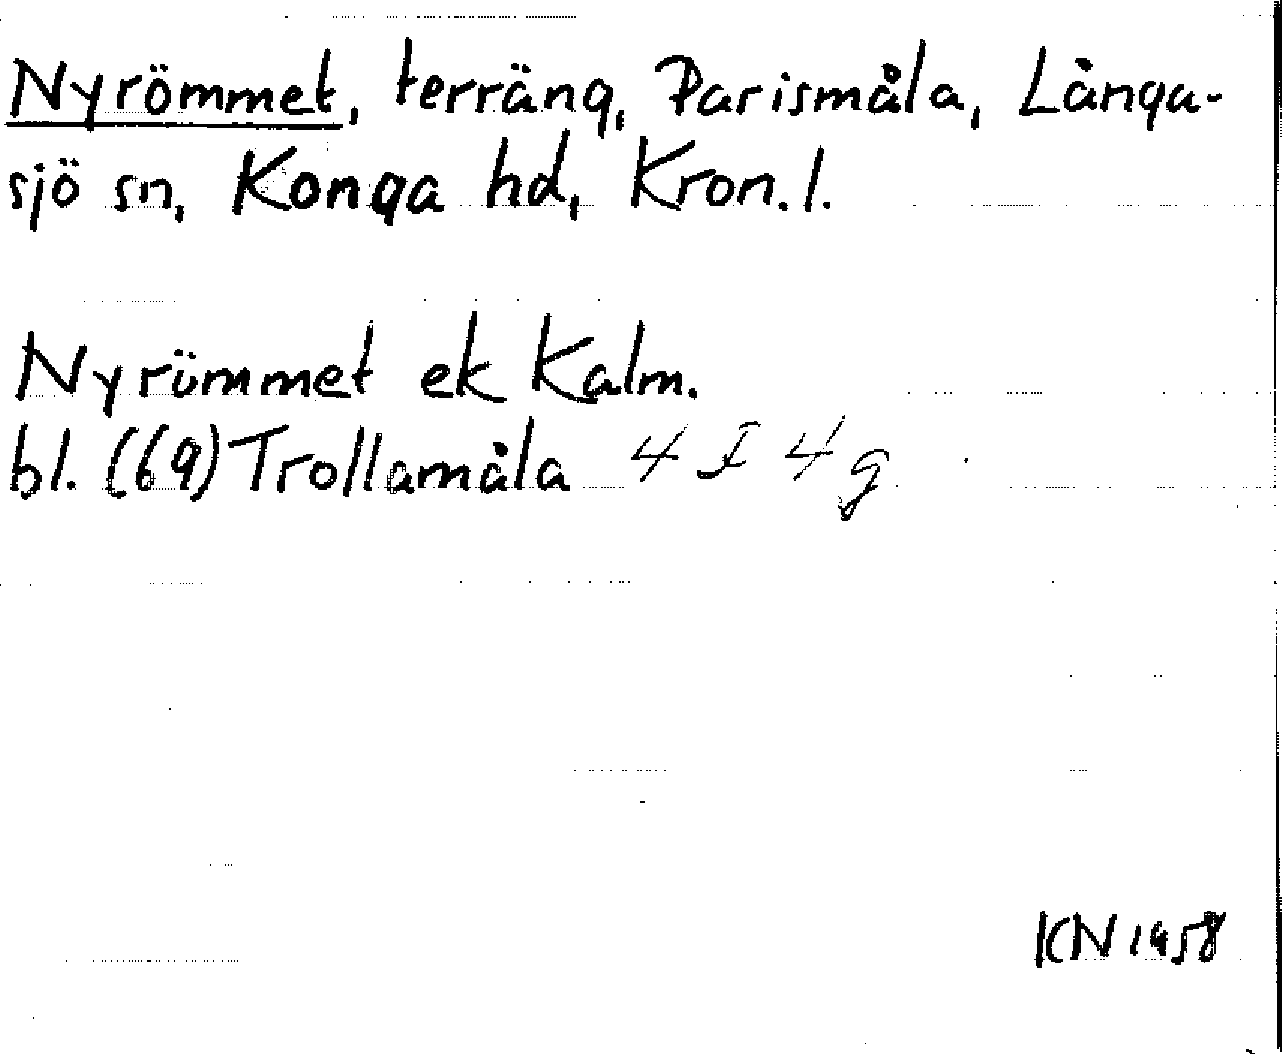 Nyrömmet, terräng, Parismåla, Långa-
sjö sn, Konga hd, Kron. l.
Nyrömmet ek Kalm.
bl. (69) Trollamåla 4 F 4 g
KN 1958